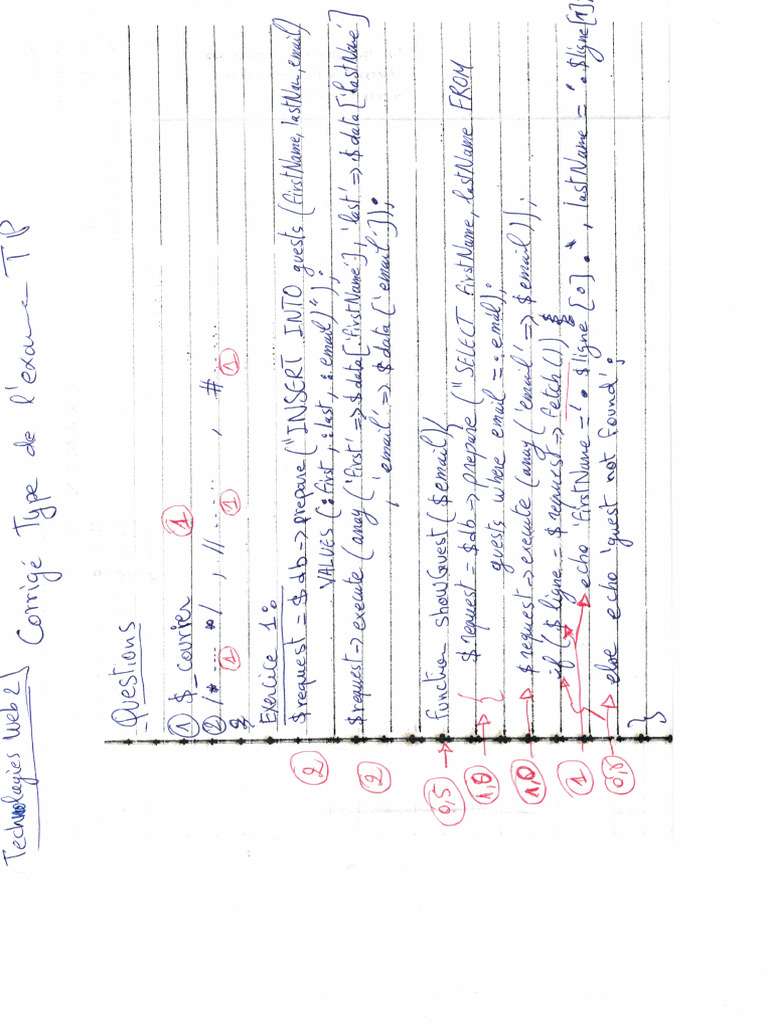 Technologies Web 2
Corrigé Type de l'examen TP
Questions
① $_courier ①
② /* .... */ ①, // ...... ①, # ..... ①
Exercice 1:
② $request = $db -> prepare ("INSERT INTO guests (firstName, lastNam, email)
VALUES (:first, :last, :email)");
② $request -> execute (array ('first' => $data['firstName'], 'last' => $data['lastName']
, 'email' => $data['email']));
0,5 function showGuest ($email){
1,0 $request = $db -> prepare ("SELECT firstName, lastName FROM
guests where email = :email);
1,0 $request -> execute (array ('email' => $email));
1 if ($ligne = $request -> fetch())
echo 'firstName ='. $ligne [0] .", lastName = '. $ligne[1];
0,5 else echo 'guest not found';
}